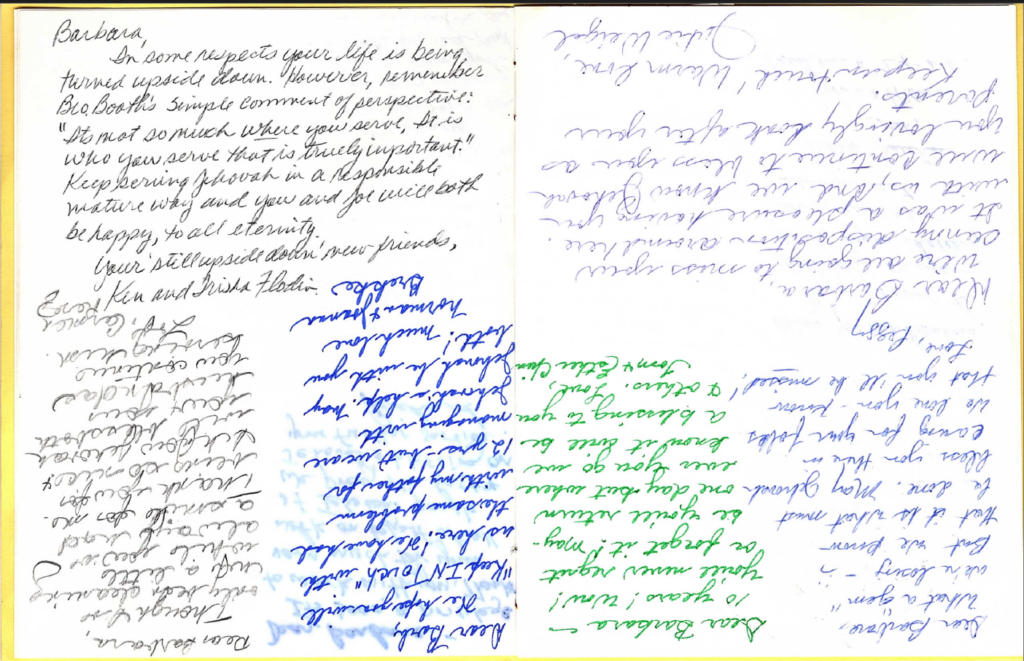 Barbara,
In some respects your life is being
turned upside down. However, remember
Bro. Booth's simple comment of perspective:
"It's not so much where you serve, it is
who you serve that is truely important."
Keep serving Jehovah in a responsible
mature way and you and Joe will both
be happy, to all eternity.
Your 'still upside down' new friends,
Ken and Trisha Flodin
Dear Barbara,
Though I've
only been cleaning
with a little
while you've
always had
a smile for me.
Thank you for
being so nice &
I know Jehovah
will bless both
you & your
husband as
you continue
serving him.
Love, Carmen
Perez
Dear Barb,
We hope you will
"Keep IN TOUCH" with
us here! We have had
the same problem
with my father for
12 yrs - but we are
managing with
Jehovah's help. May
Jehovah be with you
both! Much love
Norman & Joanna
Brekke
Dear Barbara -
10 years! Wow!
You'll never regret
or forget it! May-
be you'll return
one day but where
ever you go we
know it will be
a blessing to you
& others. Love,
Tom & Esther
Dear Barbara,
"What a gem"
we're losing -
But we know
that it is what must
be done. May Jehovah
bless you then in
caring for your folks
We love you - know
that you'll be missed!
Love, Peggy
Dear Barbara,
We're all going to miss your
sunny disposition around here.
It was a pleasure having you
with us, and we know Jehovah
will continue to bless you as
you lovingly look after your
parents.
Keep in touch! Warm love,
Julie Weigel